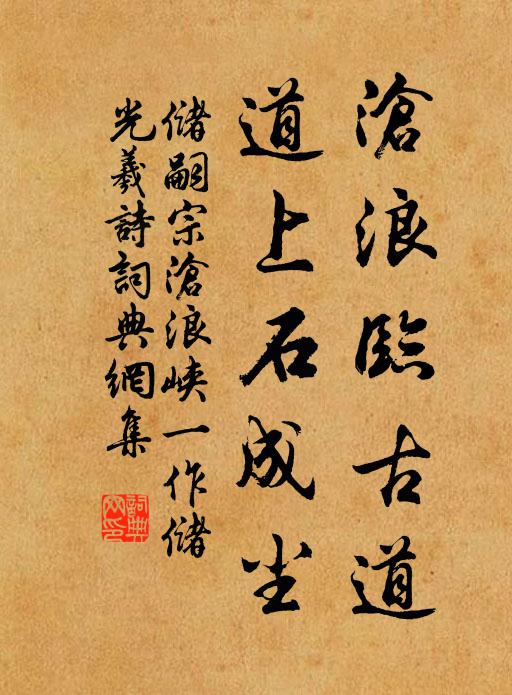 滄浪臨古道
道上石成尘
儲嗣宗滄浪峽一作儲
光羲詩詞典網集
詞典
网印